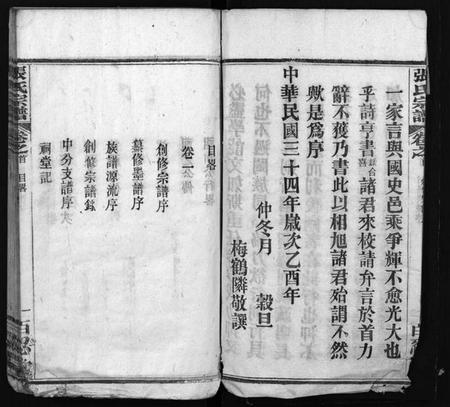 張氏宗譜
一家言與國史邑乘爭輝不愈光大也
乎詩亨書諸君來校請弁言於首力
辭不獲乃書此以相旭諸君殆謂不然
歟是為序
中華民國三十四年歲次乙酉年
仲冬月 穀旦
梅鶴隣敬譔
目畧
卷一
創修宗譜序
纂修墨譜序
族譜源流序
創修宗譜錄
中分支譜序
祠堂記
張氏宗譜
卷之首 目畧
一